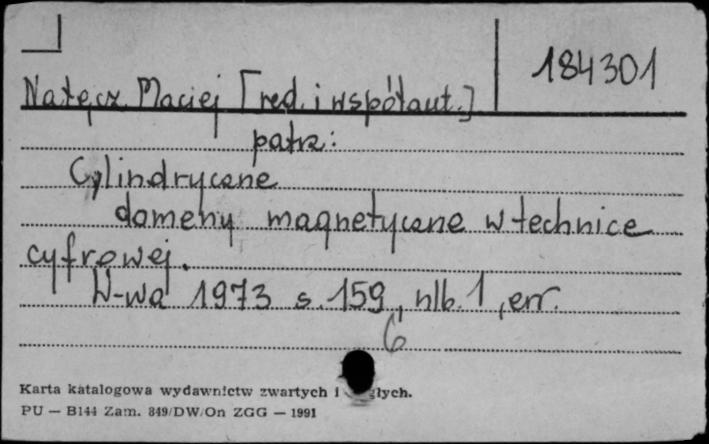 184301
Nałęcz Maciej [red. i współaut.]
patrz:
Cylindryczne
domeny magnetyczne w technice
cyfrowej.
W-wa 1973 s. 159, nlb. 1, err.
6
Karta katalogowa wydawnictw zwartych i
PU — B144 Zam. 849/DW/On ZGG — 1991